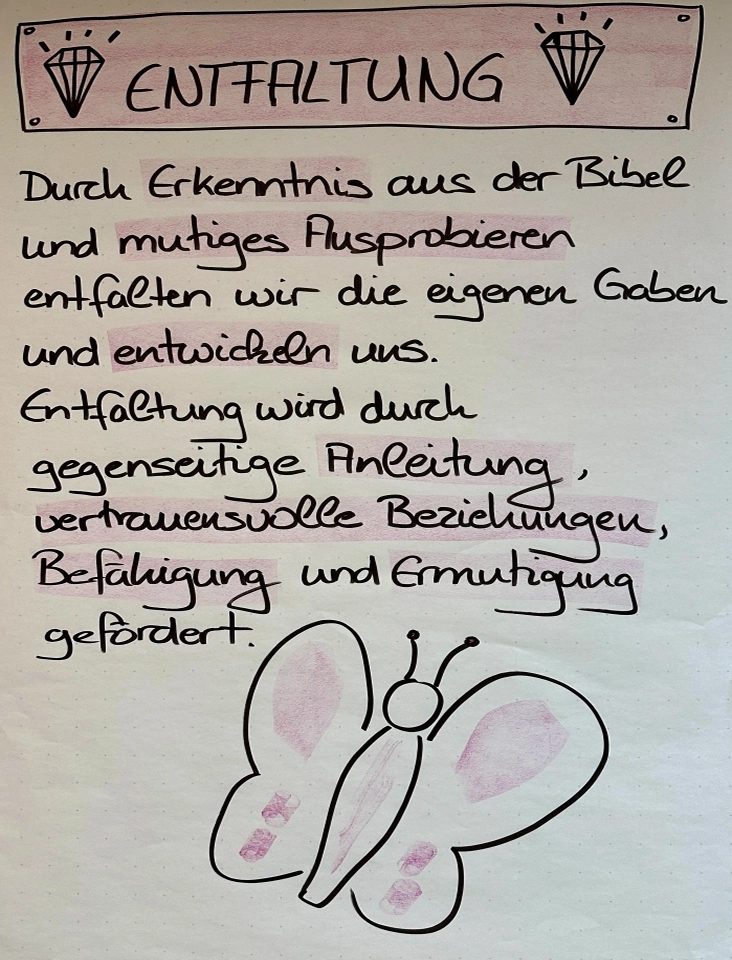 ENTFALTUNG
Durch Erkenntnis aus der Bibel
und mutiges Ausprobieren
entfalten wir die eigenen Gaben
und entwickeln uns.
Entfaltung wird durch
gegenseitige Anleitung,
vertrauensvolle Beziehungen,
Befähigung und Ermutigung
gefördert.